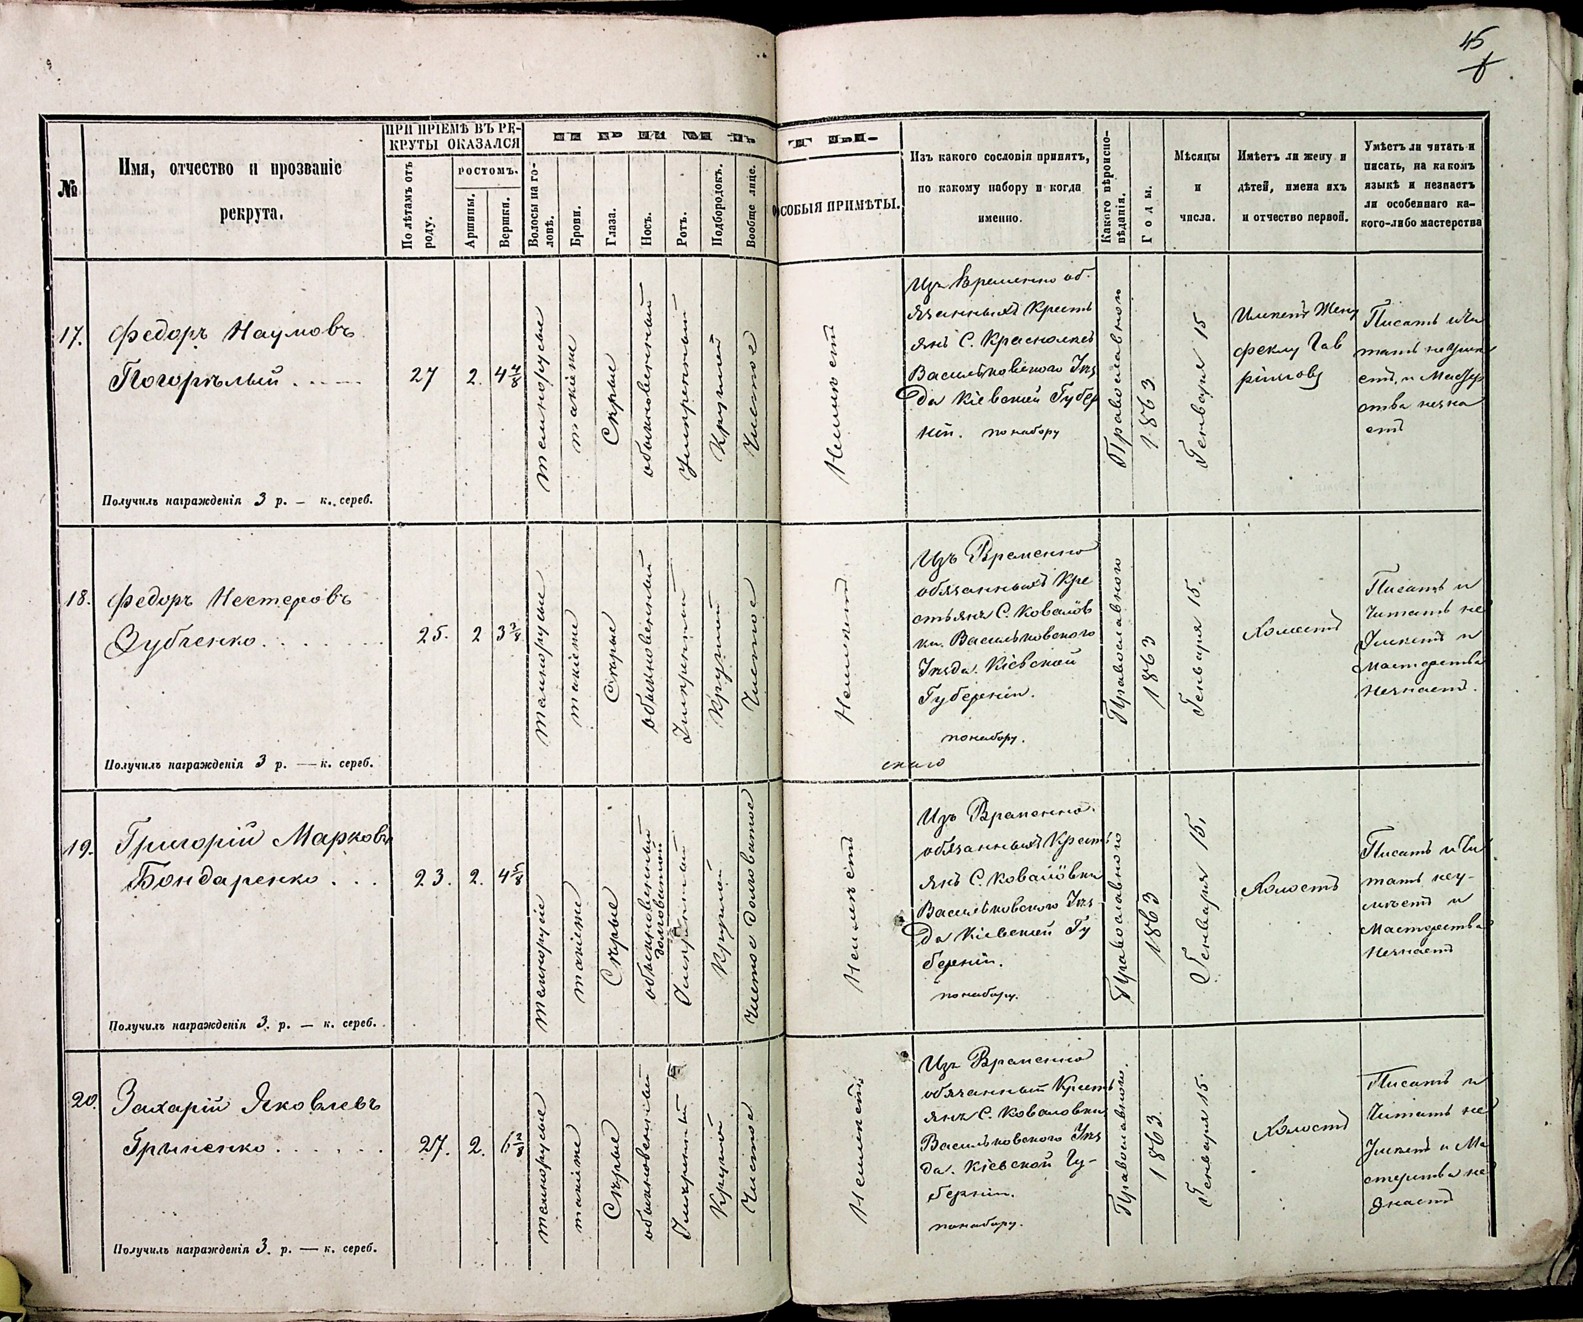 45
№
Имя, отчество и прозваніе
рекрута.
ПРИ ПРІЕМѢ ВЪ РЕ-
КРУТЫ ОКАЗАЛСЯ
По лѣтамъ отъ
роду.
ростомъ.
Аршины.
Вершки.
ПРИМѢ
ТЫ.
Волосы на го-
ловѣ.
Брови.
Глаза.
Носъ.
Ротъ.
Подбородокъ.
Вообще лице.
ОСОБЫЯ ПРИМѢТЫ.
Изъ какого сословія принятъ,
по какому набору и когда
именно.
Какого вѣроиспо-
вѣданія.
Годы.
Мѣсяцы
и
числа.
Имѣетъ ли жену и
дѣтей, имена ихъ
и отчество первой.
Умѣетъ ли читать и
писать, на какомъ
языкѣ и незнаетъ
ли особеннаго ка-
кого-либо мастерства
17.
Федоръ Наумовъ
Погорѣлый
27
2.
4 4/8
темнорусые
такіеже
Сѣрые
обыкновенный
Умѣренный
Круглый
Чистое
Неимѣетъ
Изъ Временно об-
язанныхъ Кресть
янъ С. Красномѣ
Васильковскаго Уѣз
да Кіевской Губер
ніи. по набору
Православнои
1863
Генваря 15
Имѣетъ Жену
Феклу Гав
рилову
Писать и Чи
тать неумѣ
етъ, и Мастер
ства незна
етъ
Получилъ награжденія 3 р. — к. сереб.
18.
Федоръ Нестеровъ
Зубченко
25.
2
3 2/8
темнорусые
такіеже
Сѣрые
обыкновенный
Умѣренный
Круглый
Чистое
Неимѣетъ
Изъ Временно
обязанныхъ Кре
стьянъ С. Ковалёв
ки. Васильковского
Уѣзда. Кіевской
Губерніи.
по набору.
Православного
1863
Генваря 15.
Холостъ
Писать и
Читать не
Умѣетъ и
мастерства
Незнаетъ.
Получилъ награжденія 3 р. — к. сереб.
19.
Григорій Марковъ
Бондаренко
23.
2.
4 5/8
темнорусые
такіеже
Сѣрые
обыкновенный
долговатый
Умѣренный
Круглый
Чисто долговатое
скаго
Неимѣетъ
Изъ Временно-
обязанныхъ Кресть
янъ С. Ковалёвки
Васильковского Уѣз
да Кіевской Гу
берніи.
по набору.
Православного
1863
Генваря 15,
Холостъ
Писать и Чи
тать неу-
мѣетъ и
Мастерства
Незнаетъ
Получилъ награжденія 3. р. — к. сереб.
20.
Захарій Яковлевъ
Гриненко
27.
2.
6 2/8
темнорусые
такіеже
Сѣрые
обыкновенный
Умѣренный
Круглый
Чистое
Неимѣетъ
Изъ Временно
обязанный Кресть
янъ С. Коваловки
Васильковского Уѣз
да. Кіевской Гу-
берніи.
по набору.
Православного.
1863.
Генваря 15.
Холостъ
Писать и
Читать не
Умѣетъ и Ма
стерства не
Знаетъ
Получилъ награжденія 3. р. — к. сереб.